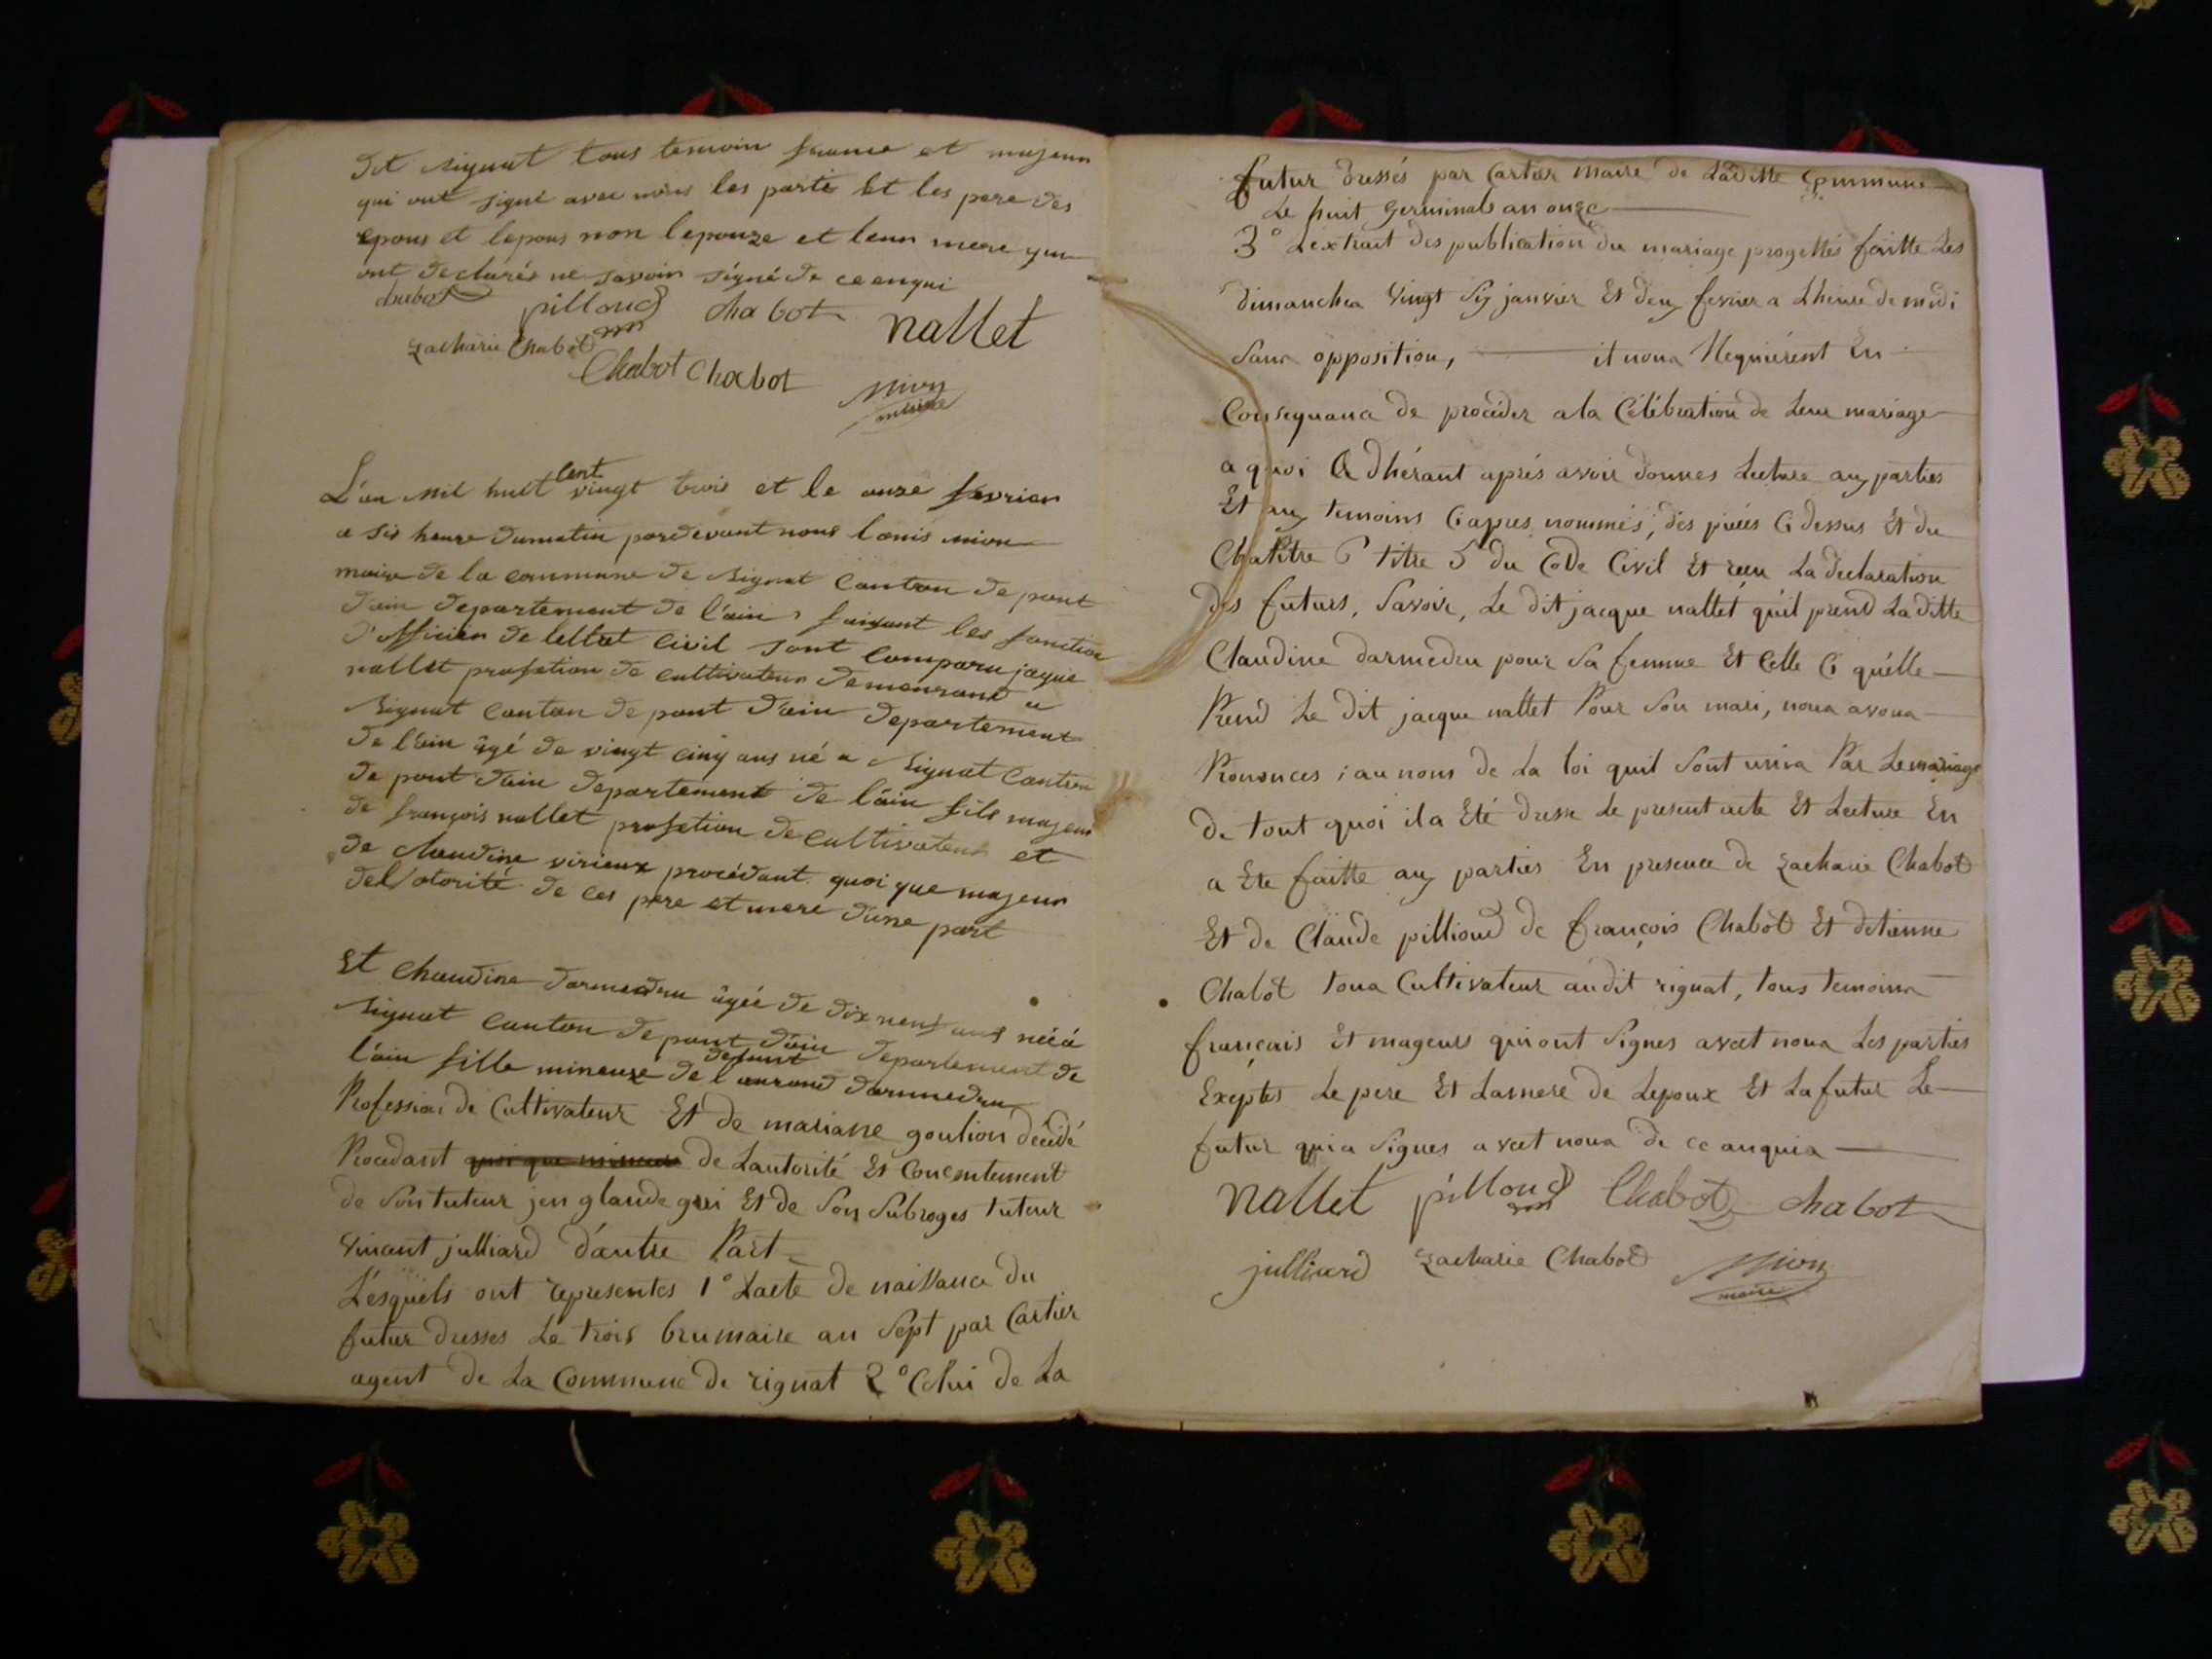 dit rignat tous temoin francé et majeur
qui ont signé avec nous les parti Et les pere des
epous et lepous non lepouze et leur mere qui
ont declarés ne savoin signé de ce enqui
chabot pilloud chabot nallet
Zacharie Chabot
Chabot Chabot mion
maire
L'an mil huit cent vingt trois et le onze fevrier
a sis heure dumatin pardevant nous louis mion
maire de la commune de Rignat Canton de pont
dain departement de l'ain, faisant les fonction
d'officier de lettat Civil sont comparu jaque
nallet profetion de cultivateur demeurand a
Rignat Canton de pont d'ain departement
de l'ain âgé de vingt cinq ans né a Rignat Canton
de pont d'ain departement de l'ain fils majeur
de françois nallet profetion de cultivateur et
de claudine virieux procédant quoi que majeur
del'otorité de ces pere et mere d'une part
Et Claudine darmedru âgée de dix neuf ans née à
Rignat Canton de pont d'ain departement de
l'ain fille mineuze de defunt laurand darmedru
Profession de Cultivateur Et de mariane goulion décidé
Procedant quoi que mineure de Lautorité Et Concentement
de Son tuteur jen glaude gui Et de Son Subroges tuteur
Vincent julliard d'autre Part
Lesquels ont representes 1° Lacte de naissance du
futur dresses Le trois brumaire an Sept par Cartier
agent de La Commune de rignat 2° Celui de La
futur dressés par Cartier maire de Laditte Commune
Le huit germinal an onze
3° Lextrait des publication du mariage progettés faitte Les
dimanches Vingt Six janvier Et deux fevrier a Lheure de midi
Sans opposition, it nous Requiérent En
Consequance de proceder a la Célébration de Leur mariage
a quoi Adhérant aprés avoir donnes Lecture aux parties
Et aux temoins Ciapres nommés, des piéces Ci dessus Et du
Chapitre 6 titre 5 du Code Civil Et recu La declaration
des futurs, Savoir, Le dit jacque nallet qu'il prend La ditte
Claudine darmedru pour Sa femme Et Celle Ci qu'élle
Prend Le dit jacque nallet Pour Son mari, nous avons
Prononces ; au nom de La loi quil Sont unis Par Le mariage
de tout quoi il a Eté dresse Le present acte Et Lecture En
a Ete faitte aux parties En presence de Zacharie Chabot
Et de Claude pillioud de françois Chabot Et detienne
Chabot tous Cultivateur audit rignat, tous temoins
francais Et mageurs qui ont Signes avect nous Les parties
Exeptes Le pere Et Lamere de Lepoux Et La futur Le
futur qui a Signes avect nous de ce anquis
nallet pilloud Chabot chabot
julliard Zacharie Chabot mion
maire